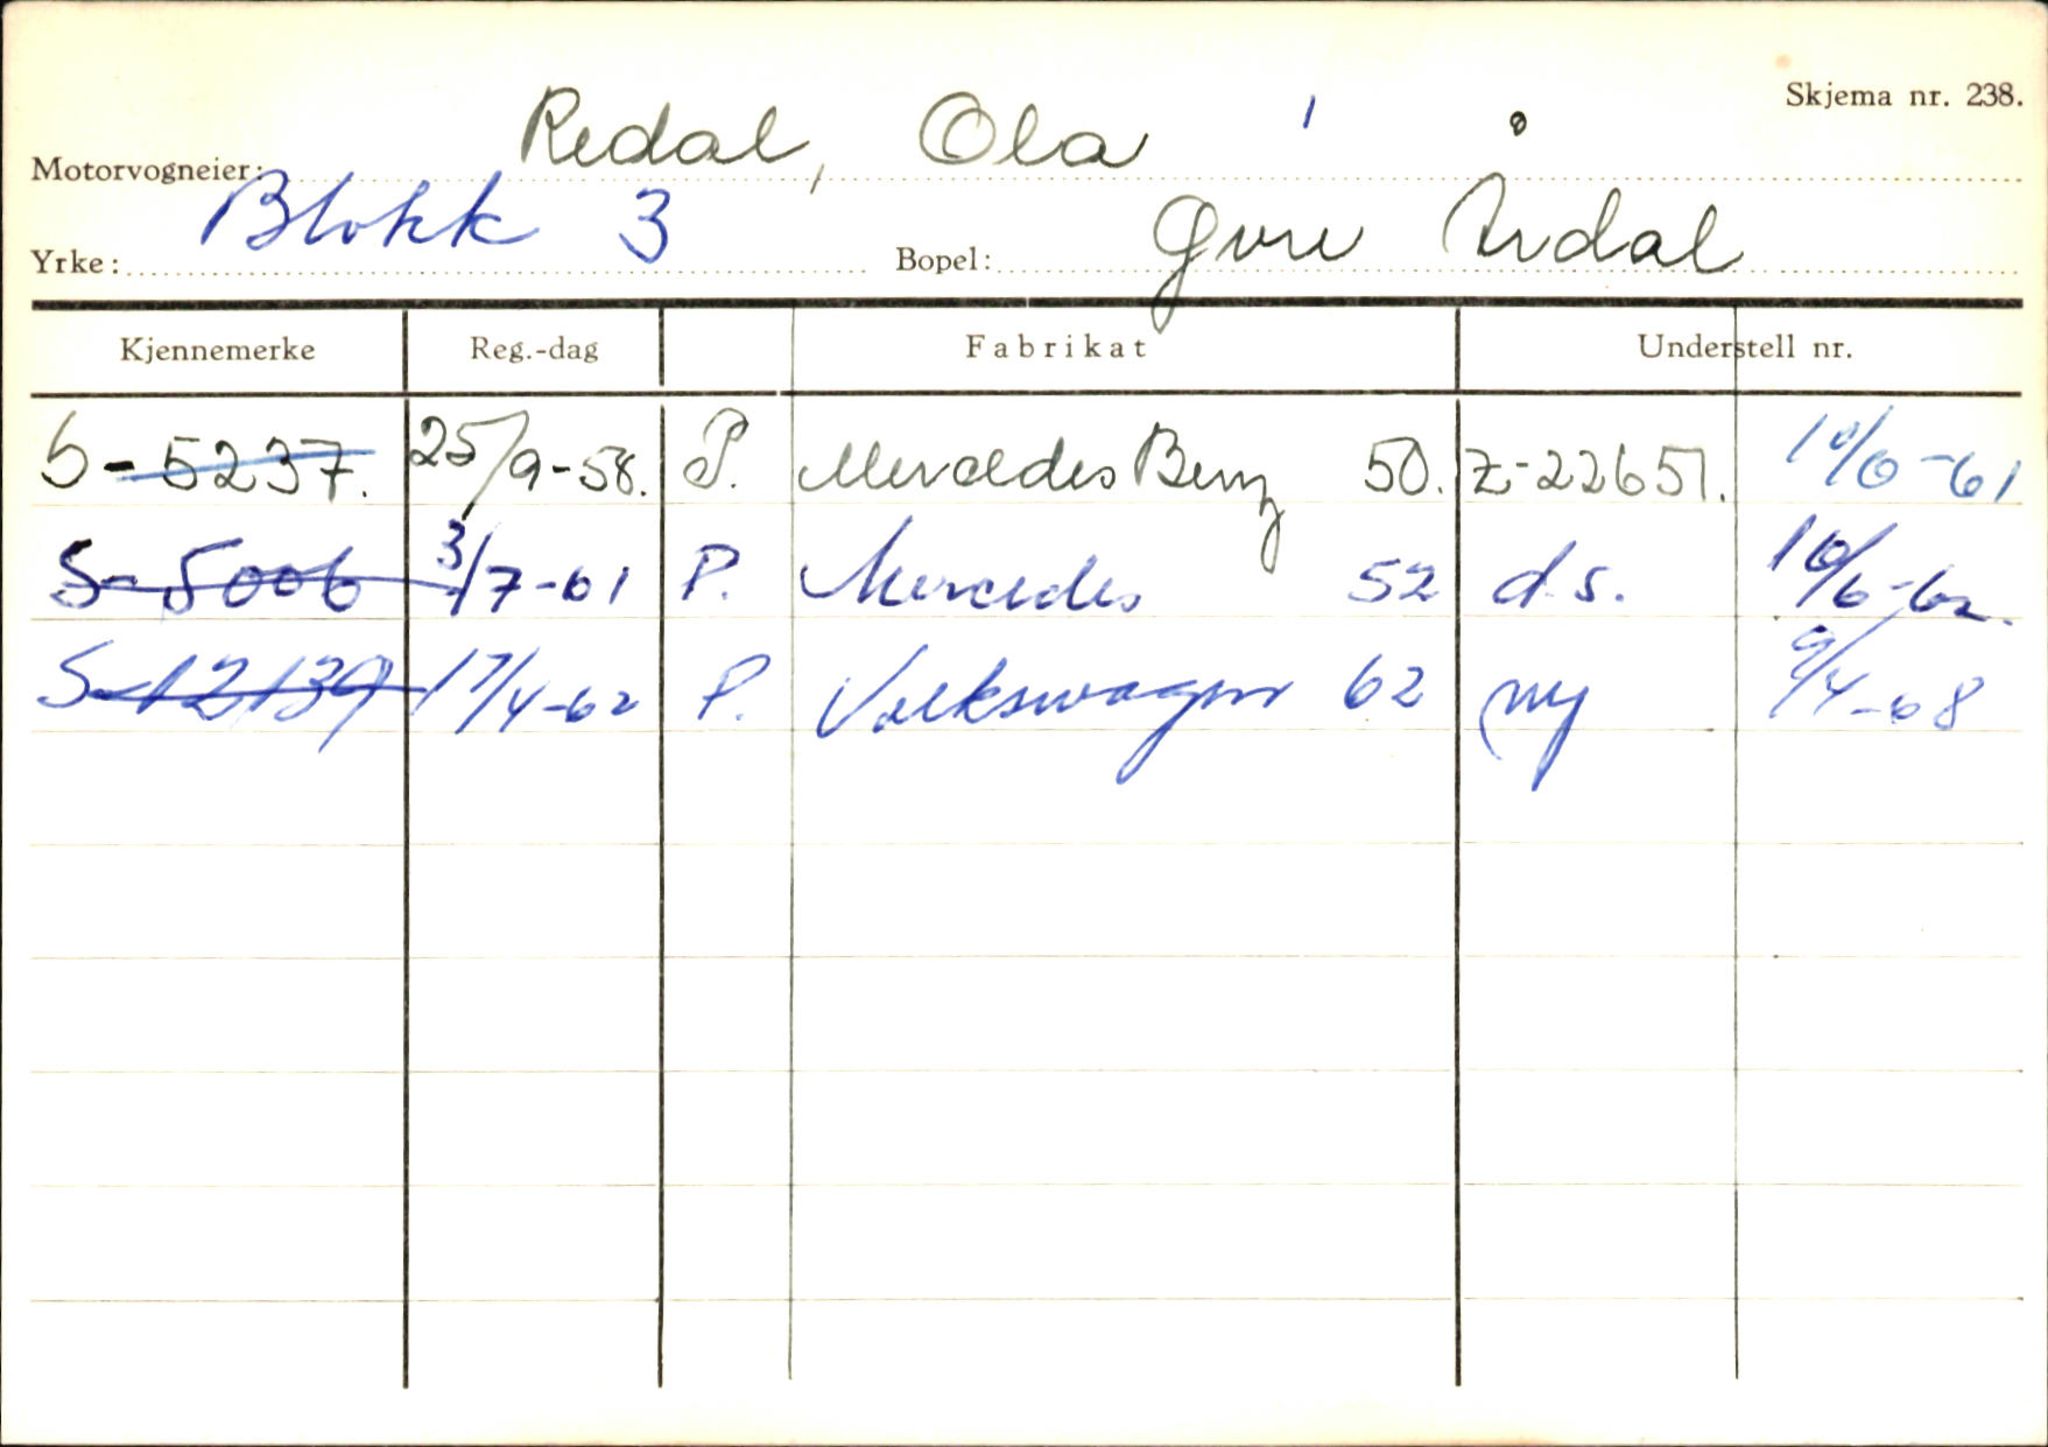 Skjema nr. 238.
Motorvogneier: Redal, Ola
Yrke: Blokk 3 Bopel: Øvre Årdal
Kjennemerke Reg.-dag Fabrikat Understell nr.
S-5237. 25/9-58. P. Mercedes Benz 50. Z-22651. 10/6-61
S-5006 3/7-61 P. Mercedes 52 d.s. 10/6-62.
S-12139 17/4-62 P. Volkswagen 62 ny 9/4-68